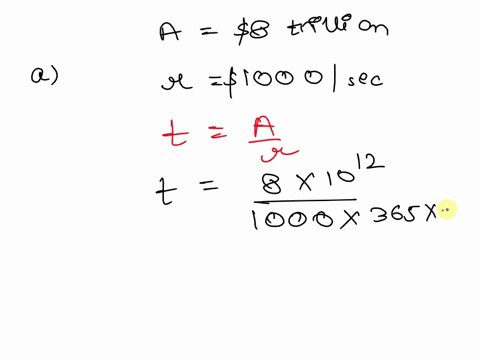 A = $8 trillion
a) r = $1000 | sec
t = A / r
t = 8 × 10^12 / 1000 × 365 ×